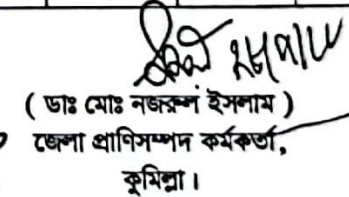 ( ডাঃ মোঃ নজরুল ইসলাম )
জেলা প্রাণিসম্পদ কর্মকর্তা,
কুমিল্লা।